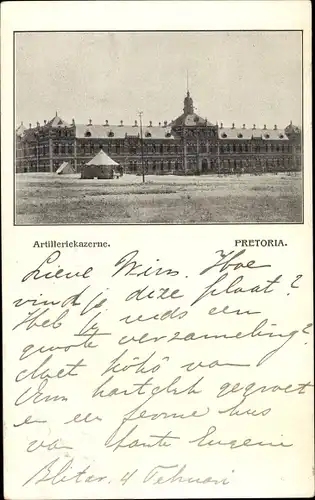 Artilleriekazerne. PRETORIA.
Lieve Wim. Hoe
vind je deze plaat?
Heb je reeds een
groote verzameling?
van
Wim hartelijk gegroet
en een ferme kus
van tante Eugenie
Blitar, 4 Februari